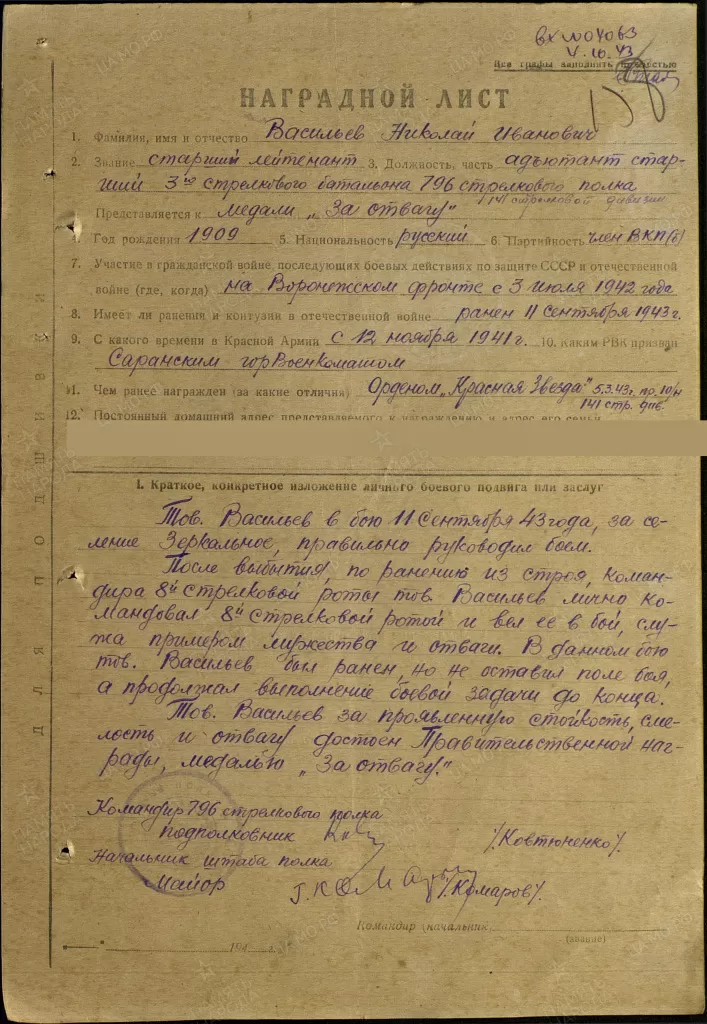 вх №04063
4.10.43
Все графы заполнять полностью
НАГРАДНОЙ ЛИСТ
1. Фамилия, имя и отчество Васильев Николай Иванович
2. Звание старший лейтенант 3. Должность, часть адъютант стар-
ший 3го стрелкового батальона 796 стрелкового полка
141 стрелковой дивизии
Представляется к медали „За отвагу"
4. Год рождения 1909 5. Национальность русский 6. Партийность член ВКП(б)
7. Участие в гражданской войне, последующих боевых действиях по защите СССР и отечественной
войне (где, когда) на Воронежском фронте с 3 июля 1942 года
8. Имеет ли ранения и контузии в отечественной войне ранен 11 сентября 1943 г.
9. С какого времени в Красной Армии с 12 ноября 1941 г. 10. Каким РВК призван
Саранским горВоенкоматом
11. Чем ранее награжден (за какие отличия) Орденом „Красная Звезда" 5.3.43г. пр. 10/н
141 стр. див.
12. Постоянный домашний адрес представляемого к награждению и адрес его семьи
I. Краткое, конкретное изложение личного боевого подвига или заслуг
Тов. Васильев в бою 11 Сентября 43 года, за се-
ление Зеркальное, правильно руководил боем.
После выбытия, по ранению из строя, коман-
дира 8й стрелковой роты тов. Васильев лично ко-
мандовал 8й стрелковой ротой и вел ее в бой, слу-
жа примером мужества и отваги. В данном бою
тов. Васильев был ранен, но не оставил поле боя,
а продолжал выполнение боевой задачи до конца.
Тов. Васильев за проявленную стойкость, сме-
лость и отвагу достоен Правительственной наг-
рады, медалью „За отвагу."
Командир 796 стрелкового полка
подполковник /Ковтюненко/.
Начальник штаба полка
Майор Г. Комаров /Комаров/.
Командир (начальник)
(звание)
194 г.
ДЛЯ ПОДШИВКИ